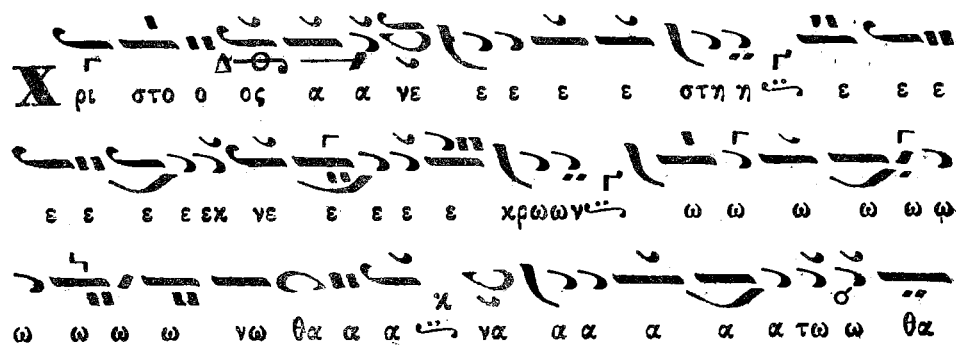 Χ ρι στο ο ος α α νε ε ε ε ε στη η ε ε ε
ε ε ε ε εκ νε ε ε ε ε κρωωυ ω ω ω ω ω ω
ω ω ω ω νω θα α α να α α α α α τω ω θα